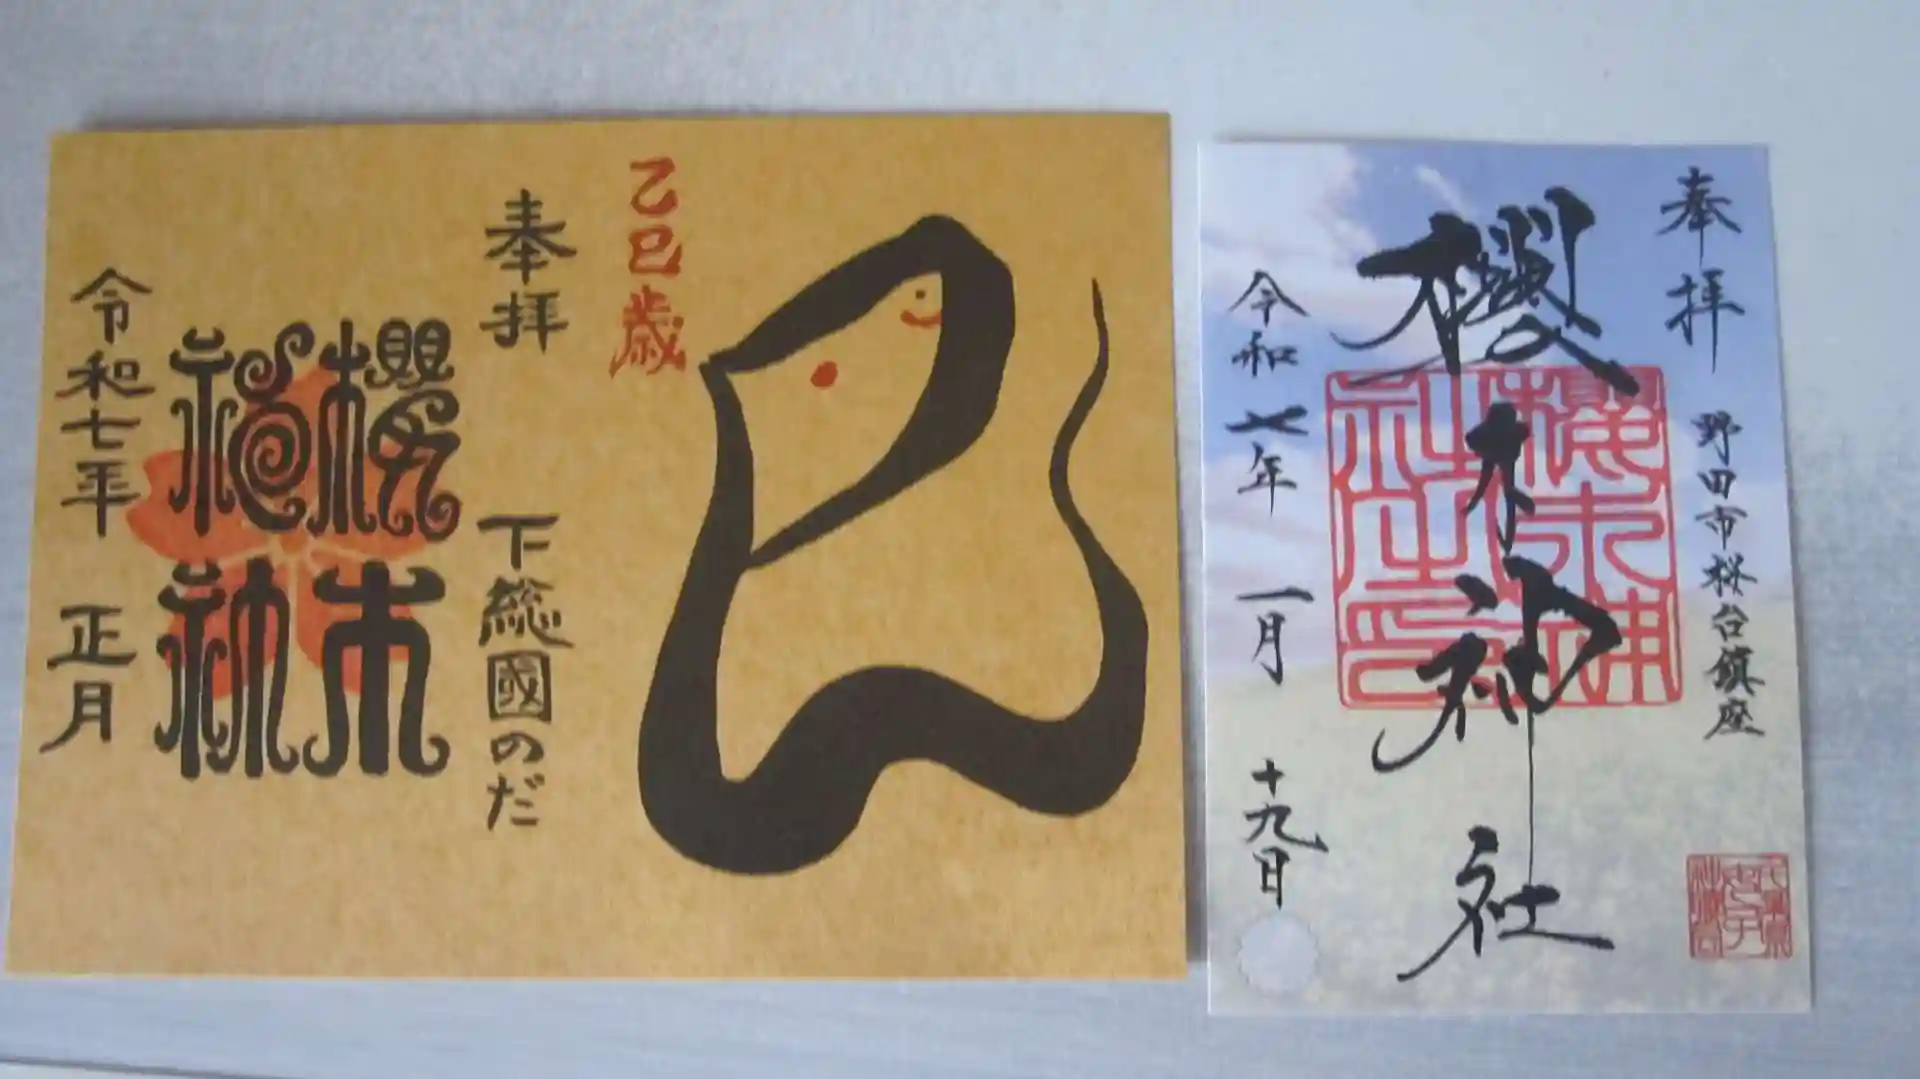 乙巳歳
巳
奉拝 下総國のだ
櫻木
神社
令和七年 正月
奉拝 野田市桜台鎮座
櫻木神社
令和七年 一月 十九日